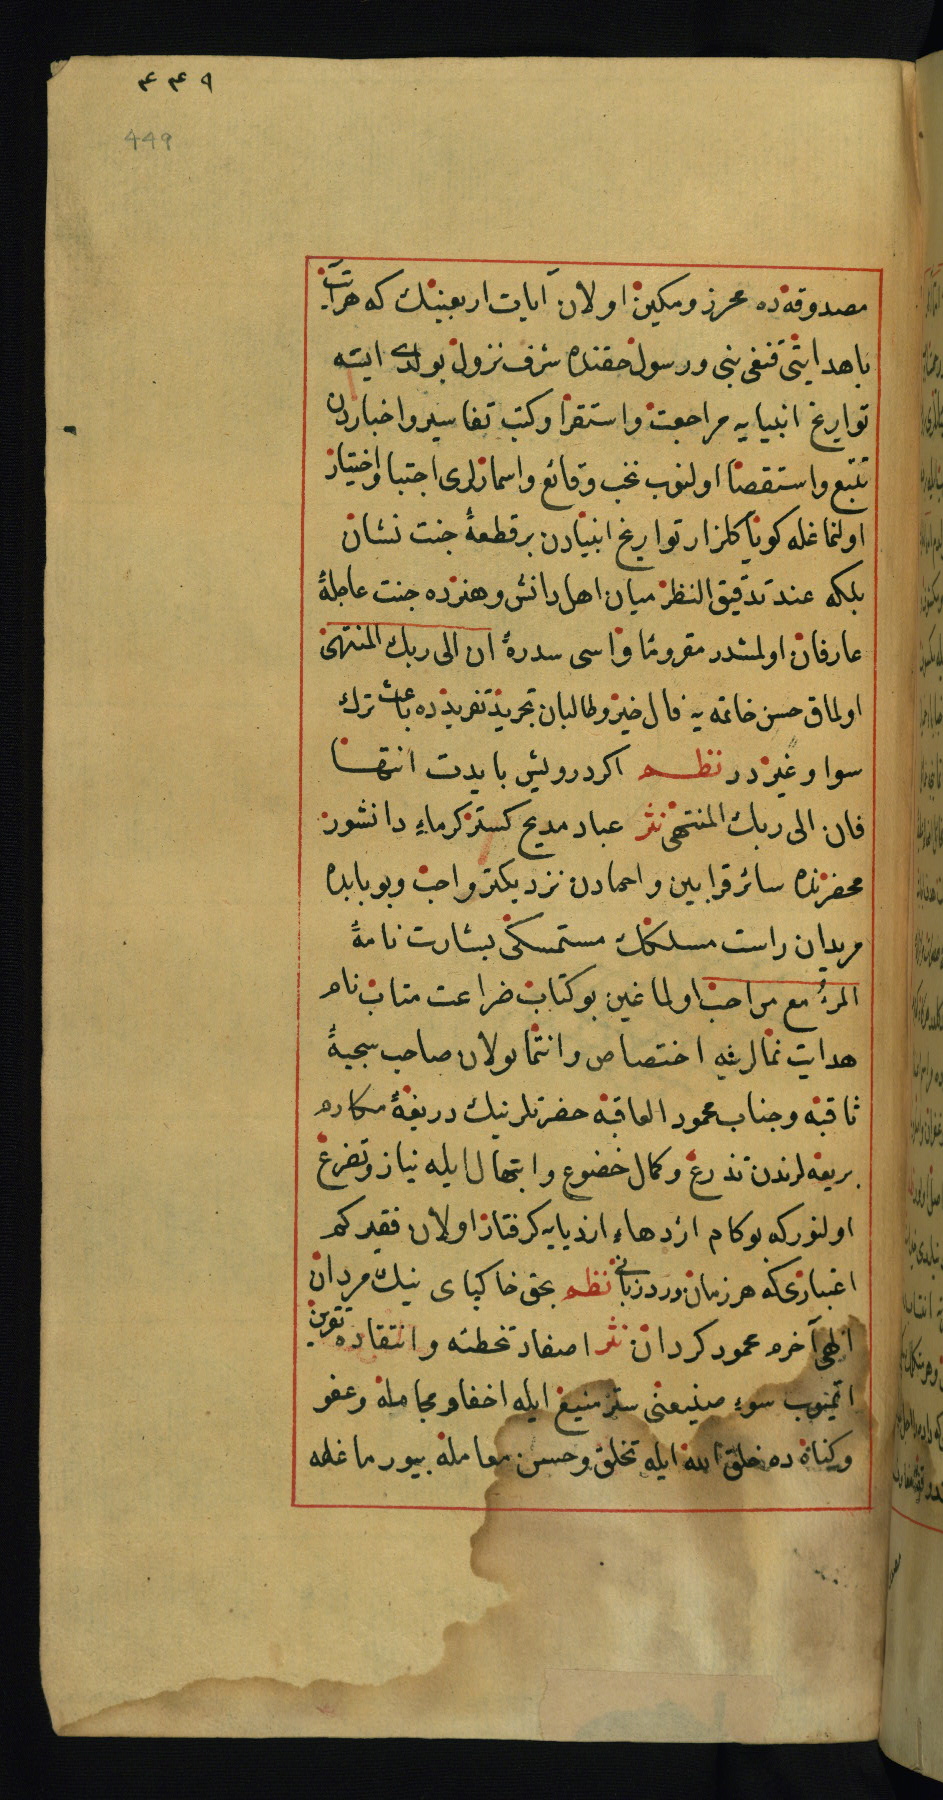 ۴۴۹
449
مصدوقه ده محرز و مکین اولان آیات اربعینك که هر آیت
باهدایتی قنغی نبی و رسول حقنده شرف نزول بولدی ایسه
تواریخ انبیایه مراجعت و استقرا و کتب تفاسیر و اخباردن
تتبع و استقصا اولنوب نخب وقائع و اسمارلری اجتبا و اختیار
اولنماغله کویا کلزار تواریخ انبیادن بر قطعهٔ جنت نشان
بلکه عند تدقیق النظر میان اهل دانش و هنرده جنت عاجلهٔ
عارفان اولمشدر مقروئا واسی سدرهٔ ان الی ربك المنتهی
اولماق حسن خاتمه یه فال خیر و طالبان تجرید تفریده باعث ترك
سوا و غیردر نظم اکر درویش بایدت انتها
فان الی ربك المنتهی نثر عباد مدیح کستر کرماء دانشور
محضرنده سائر قرابین و احمادن نزدیکتر واجب و بو بابده
مریدان راست مسلکك مستمسکی بشارت نامهٔ
المرءُ مع من احب اولماغین بو کتاب ضراعت متاب نام
هدایت نمالرینه اختصاص و انتما بولان صاحب سجیهٔ
ثاقبه و جناب محمود العاقبه حضرتلرینك دریغهٔ مکارم
بریعه لرندن تذرع و کمال خضوع و ابتهال ایله نیاز و تضرع
اولنور که بو کام اژدهاء ازدیایه کرفتار اولان فقیر کم
اعتباری که هر زمان ورد زبانی نظم بحق خاکپای نیك مردان
الهی آخرم محمود کردان نثر اصفاد تخطئه و انتقاده تقرین
اتمیوب سوء صنیعنی ستر منیع ایله اخفا و مجامله و عفو
و کناه ده خلق الله ایله تخلق و حسن معامله بیورماغله